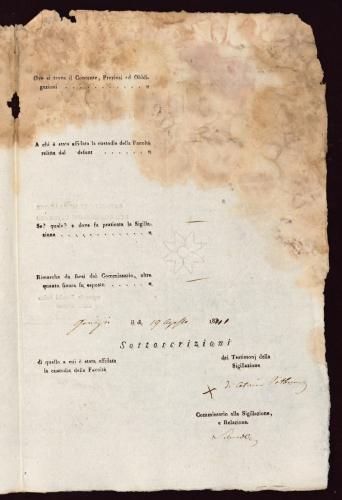 Ove si trova il Contante, Preziosi ed Obbli-
gazioni . . . . . . . . . . . . . . "
A chi è stata affidata la custodia della Facoltà
relitta dal defont . . . . . . . . . . "
Se? quale? e dove fu praticata la Sigilla-
zione . . . . . . . . . . . . . . . "
Rimarche da farsi dal Commissario, oltre
quanto finora fu esposto . . . . . . . "
il dì 19 Agosto 18
Sottoscrizioni
di quello a cui è stata affidata
la custodia della Facoltà
dei Testimonj della
Sigillazione
Commissario alla Sigillazione,
e Relazione.